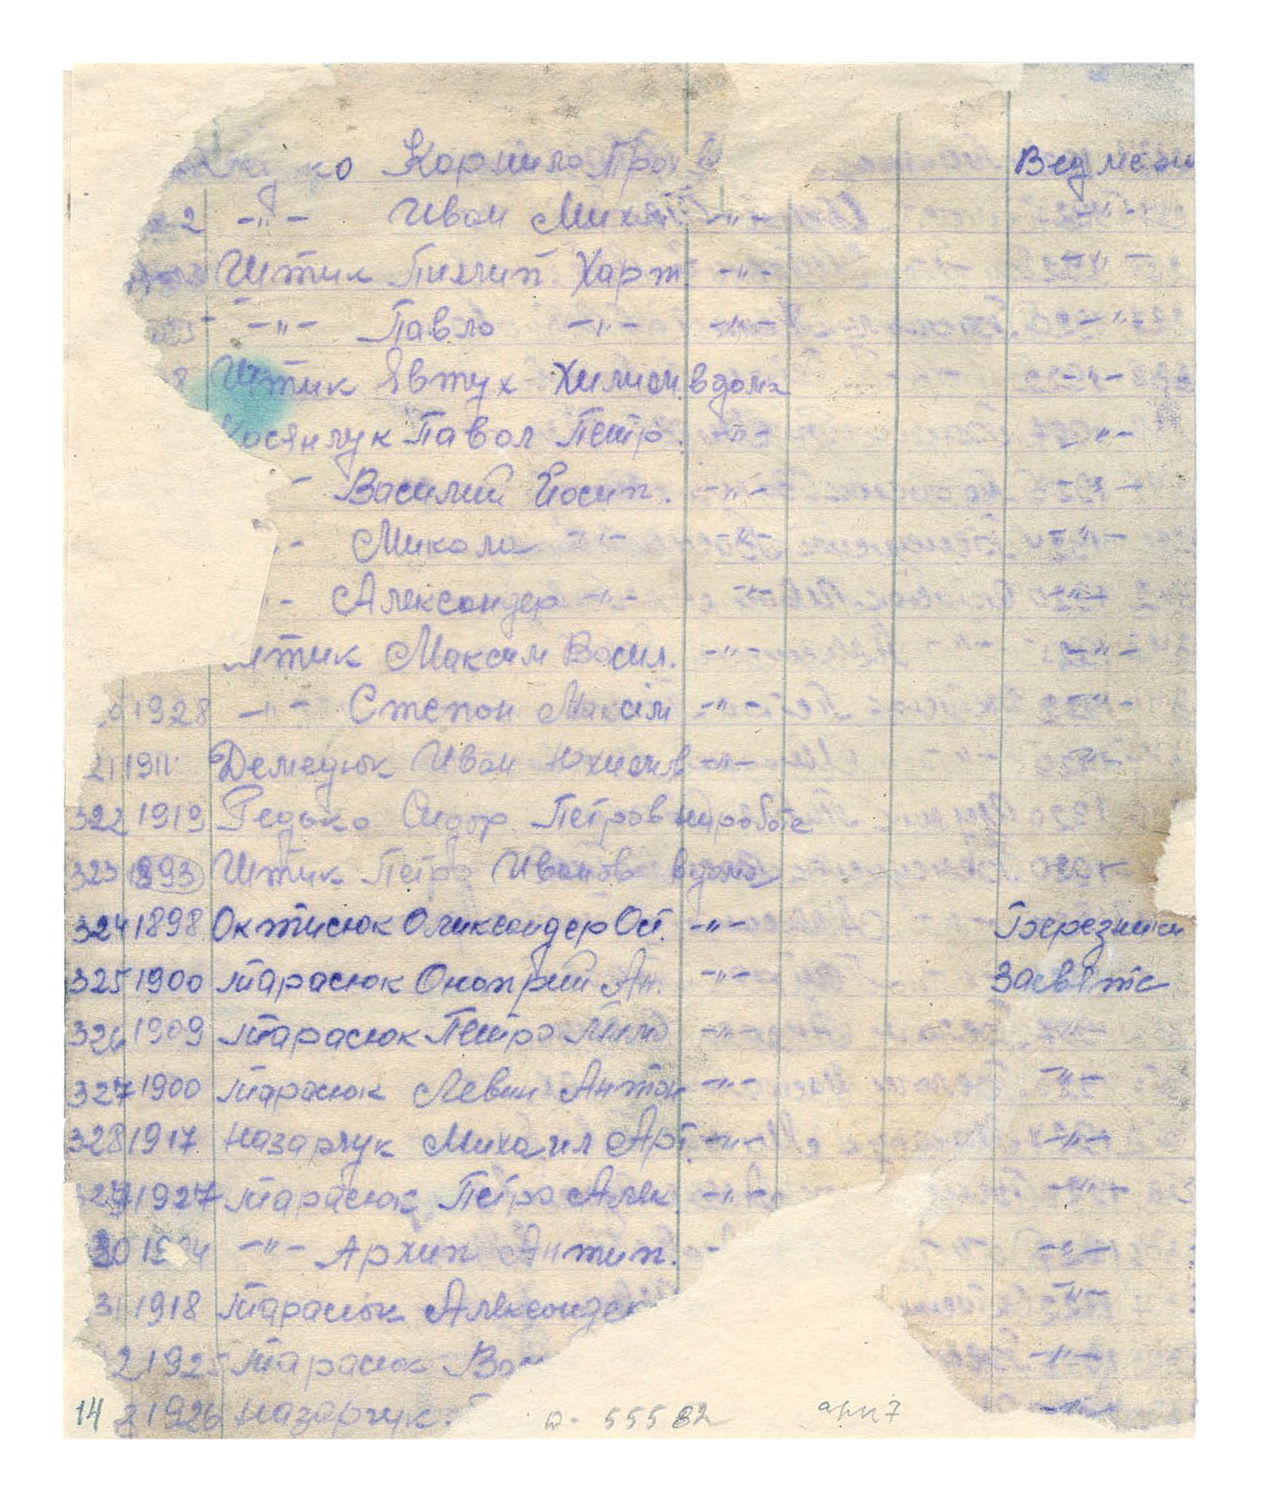 ко Корнило Прох Ведмежи
2 -"- Иван Михай -"-
Штик Пилип Харт. -"-
-"- Павло -"- -"- -"-
8 Штик Явтух Хилион вдома -"-
Косянчук Павол Петр. -"- -"-
- Василий Йосип. -"- -"-
- Микола -"- -"- -"-
- Александер -"- -"- -"-
штик Максим Васил. -"- -"-
1928 -"- Степон Максім -"- -"-
21 1911 Демедюк Иван Юхимів -"- -"-
322 1919 Редько Сидор Петров нароботе
323 893 Штик Петро Иванов вдома
324 1898 Октисюк Олександер Ост. -"- Березники
325 1900 Тарасюк Оноприй Ан. -"- Засвіте
326 1909 Тарасюк Петро -"-
327 1900 Тарасюк Левин Антон -"- -"-
328 1917 Назарчук Михаил Арт. -"- -"-
29 1927 Тарасюк Петро Алек -"- -"-
30 -"- Архип Антип. - -"-
31 1918 Тарасюк Александе -"-
2 1925 Тарасюк Вас -"-
14 3 1926 Назарчук -"-
о-55582 арк 7